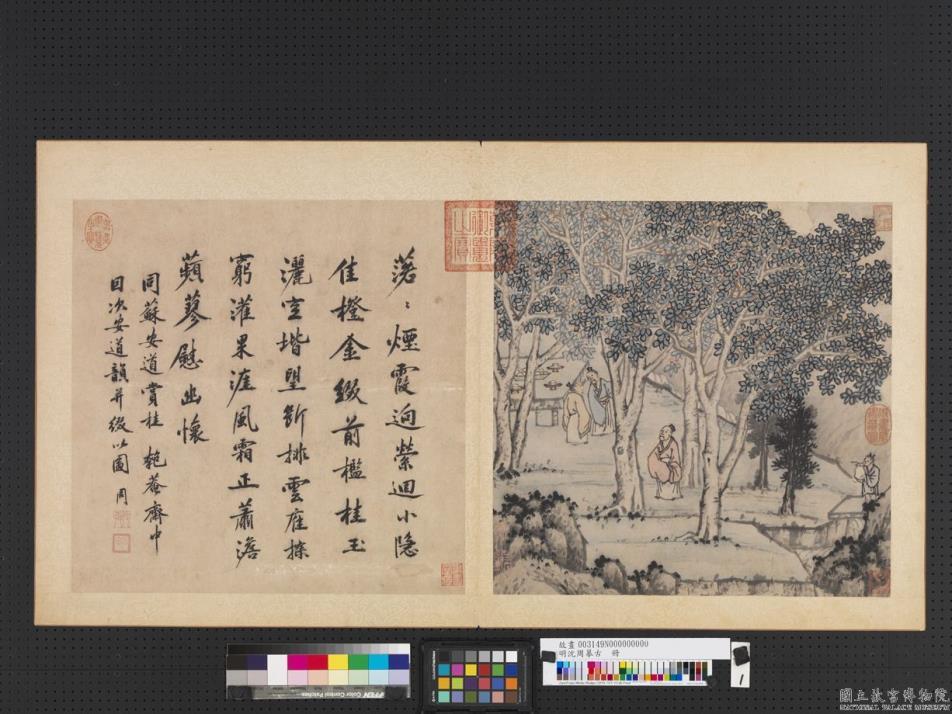 落〻煙霞迥縈迴小隐
佳橙金綴前檻桂玉
灑空堦聖斷排雲
窮灌果涯風霜正蕭
蘋蓼慰幽懷
同蘇安道賞桂 菴齋中
因次安道韻并綴以圖 周
故畫 003149N000000000
明沈周摹古 冊
1
國立故宮博物院
NATIONAL PALACE MUSEUM